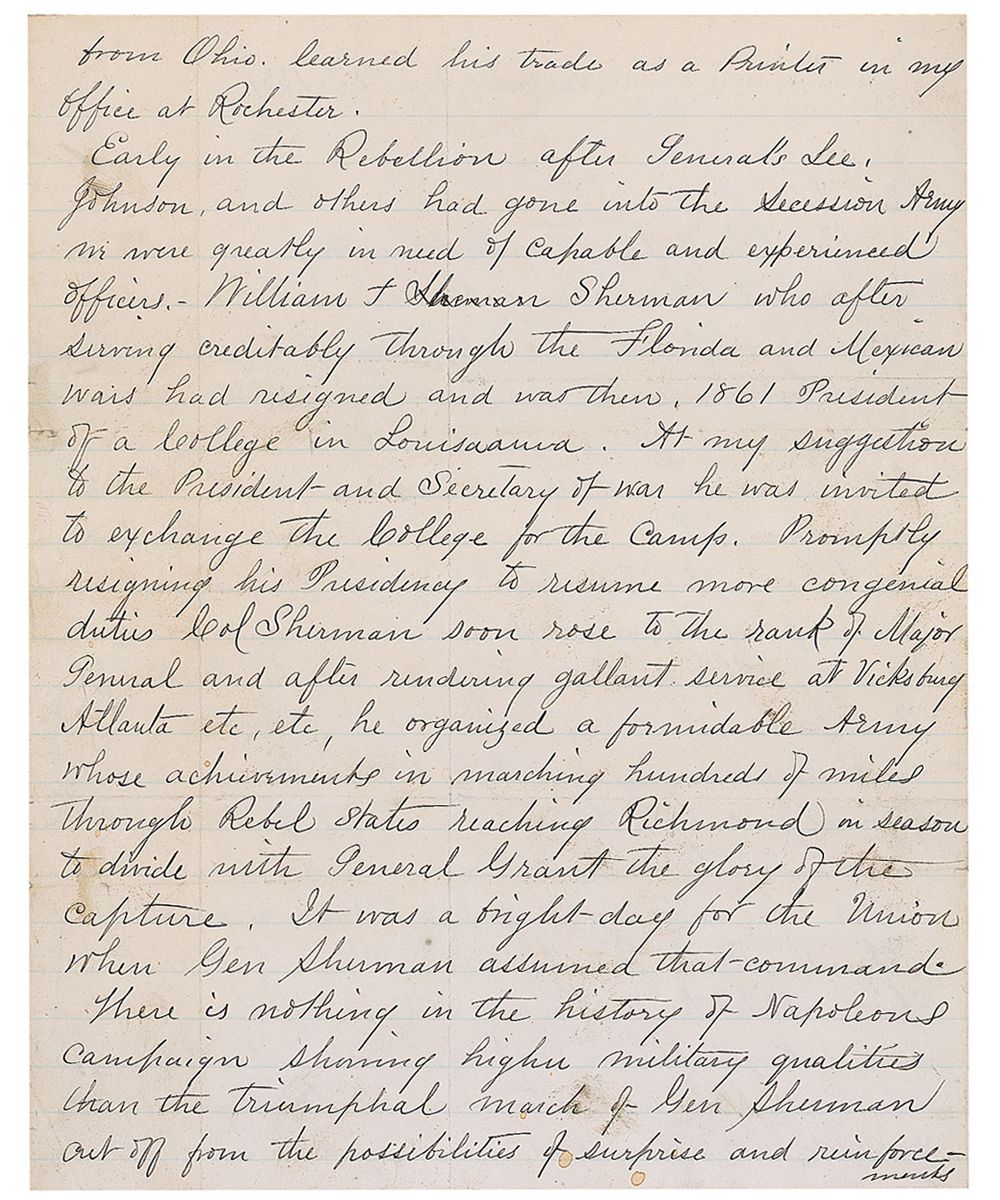 from Ohio. learned his trade as a Printer in my
office at Rochester.
Early in the Rebellion after General's Lee,
Johnson, and others had gone into the Secession Army
we were greatly in need of capable and experienced
officers. - William T Sherman Sherman who after
serving creditably through the Florida and Mexican
wars had resigned and was then, 1861 President
of a College in Louisaana. At my suggestion
to the President and Secretary of war he was invited
to exchange the College for the Camp. Promptly
resigning his Presidency to resume more congenial
duties Col Sherman soon rose to the rank of Major
General and after rendering gallant service at Vicksburg
Atlanta etc, etc, he organized a formidable Army
whose achievements in marching hundreds of miles
through Rebel States reaching Richmond in season
to divide with General Grant the glory of the
capture. It was a bright day for the Union
when Gen Sherman assumed that command.
There is nothing in the history of Napoleons
campaign showing higher military qualities
than the triumphal march of Gen Sherman
cut off from the possibilities of surprise and reinforce-
ments